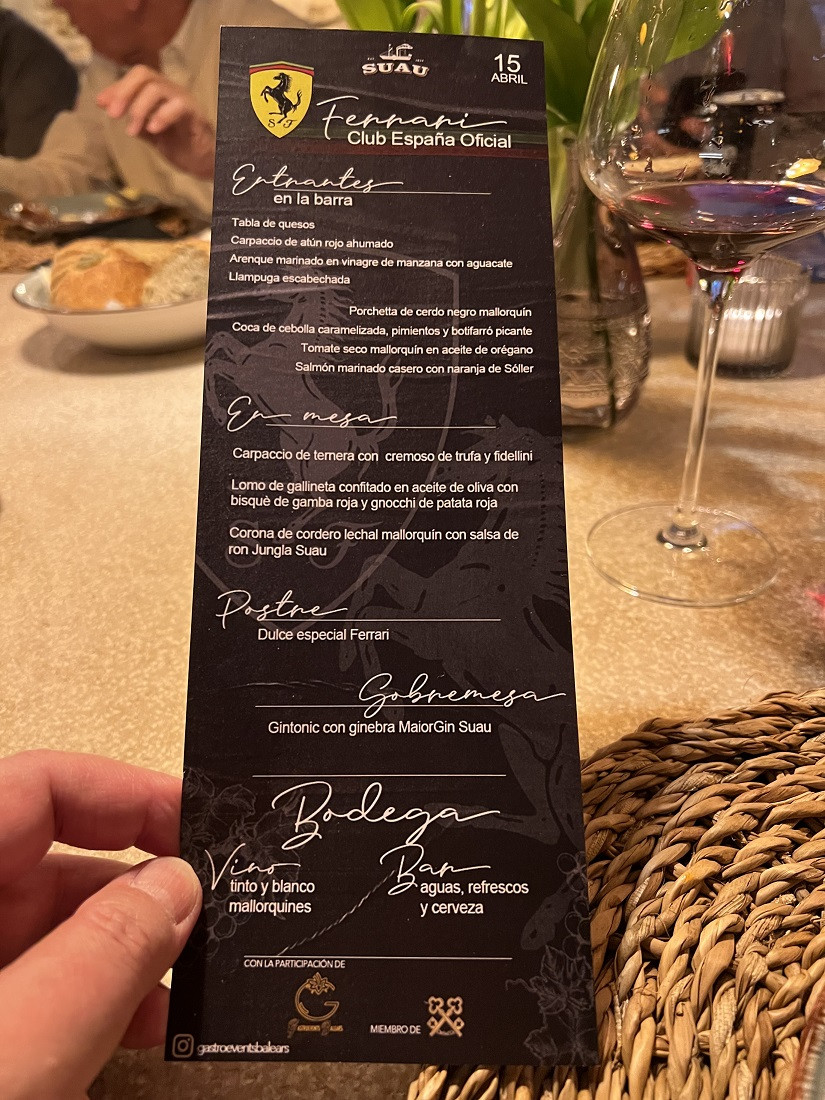 SUAU
15
ABRIL
S F
Ferrari
Club España Oficial
Entrantes
en la barra
Tabla de quesos
Carpaccio de atún rojo ahumado
Arenque marinado en vinagre de manzana con aguacate
Llampuga escabechada
Porchetta de cerdo negro mallorquín
Coca de cebolla caramelizada, pimientos y botifarró picante
Tomate seco mallorquín en aceite de orégano
Salmón marinado casero con naranja de Sóller
En mesa
Carpaccio de ternera con cremoso de trufa y fidellini
Lomo de gallineta confitado en aceite de oliva con
bisquè de gamba roja y gnocchi de patata roja
Corona de cordero lechal mallorquín con salsa de
ron Jungla Suau
Postre
Dulce especial Ferrari
Sobremesa
Gintonic con ginebra MaiorGin Suau
Bodega
Vino
tinto y blanco
mallorquines
Bar
aguas, refrescos
y cerveza
CON LA PARTICIPACIÓN DE
G
GASTROEVENTS BALEARS
MIEMBRO DE
gastroeventsbalears